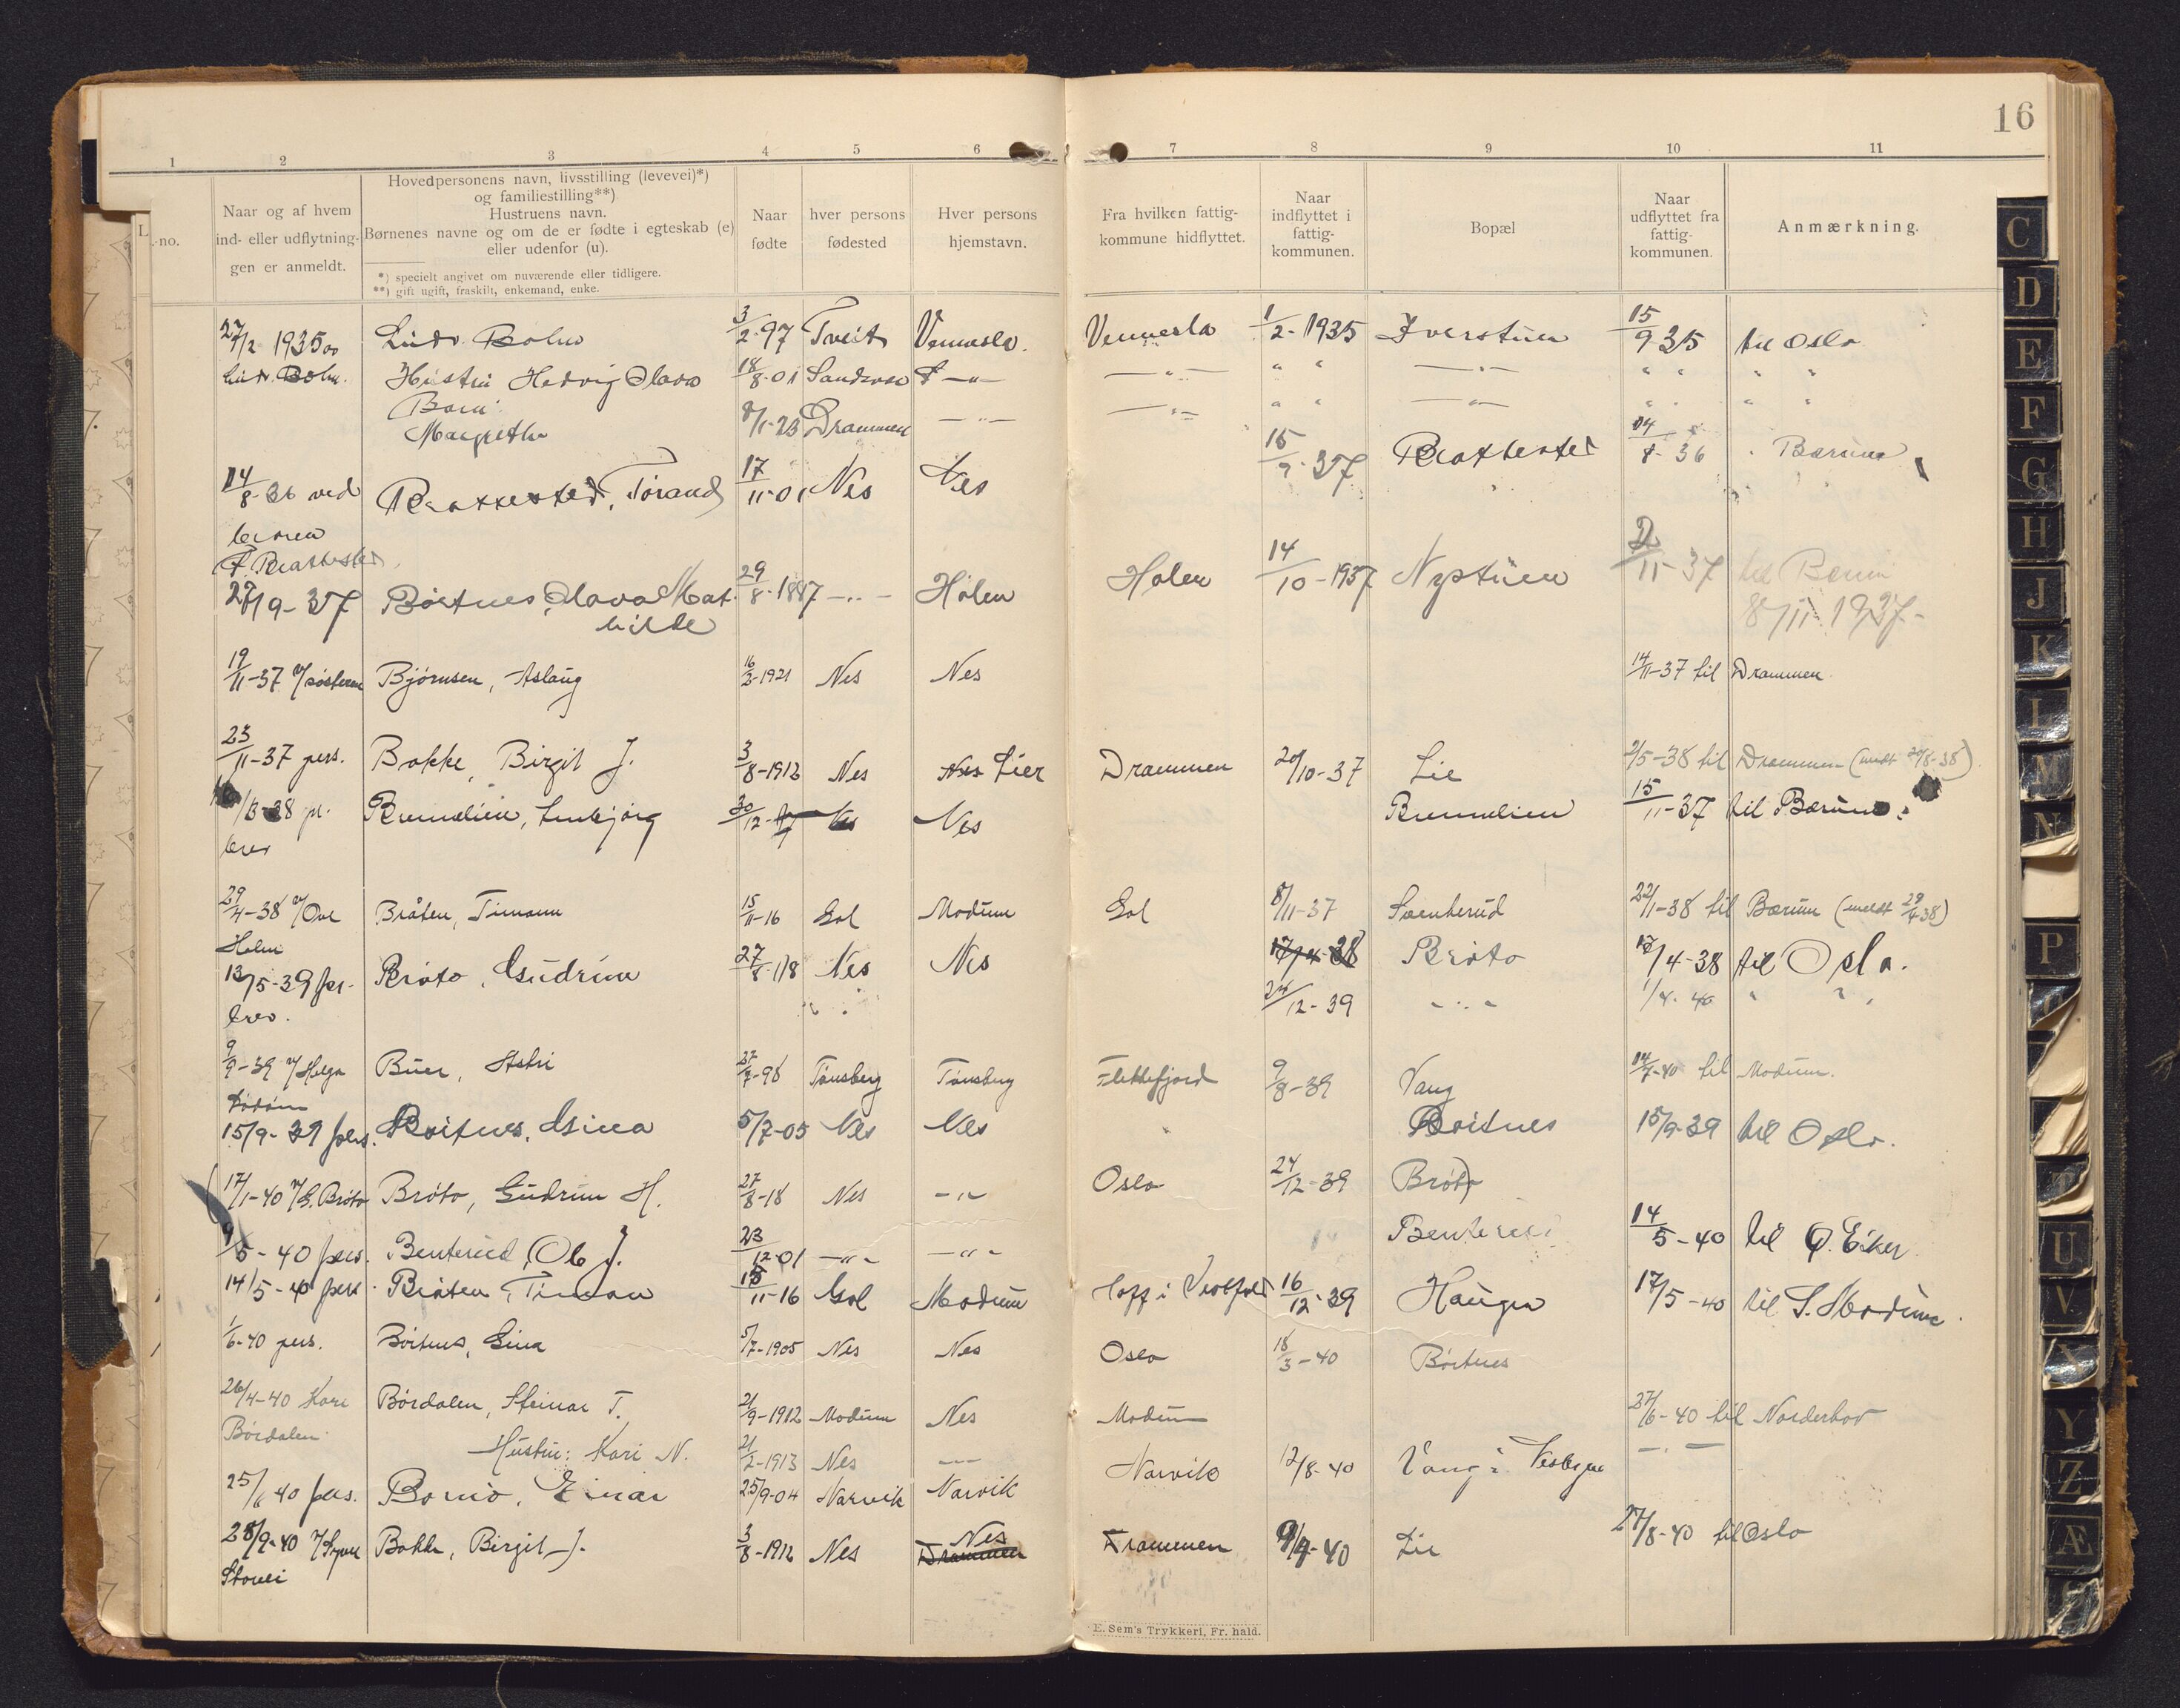 16
1 2 3 4 5 6 7 8 9 10 11
L.-no.
Naar og af hvem
ind- eller udflytnin-
gen er anmeldt.
Hovedpersonens navn, livsstilling (levevei)*)
og familiestilling**)
Hustruens navn.
Børnenes navne og om de er fødte i egteskab (e)
eller udenfor (u).
*) specielt angivet om nuværende eller tidligere.
**) gift ugift, fraskilt, enkemand, enke.
Naar
fødte
hver persons
fødested
Hver persons
hjemstavn.
Fra hvilken fattig-
kommune hidflyttet.
Naar
indflyttet i
fattig-
kommunen.
Bopæl
Naar
udflyttet fra
fattig-
kommunen.
Anmærkning.
27/2 1935 Ludv. Bolm 3/2-97 Tveit Vennesla. Vennesla 1/2-1935 Iverstuen 15/9 35 til Oslo
Ludv. Bolm. Hustru Hedvig Olava 18/8-01 -"- -"- " " -"- " " " "
Barn:
Margrethe 8/1-23 Drammen -"- -"- " " -"- " " " "
14/8-36 ved 17/11-01 Nes Nes 15/9-37 14/8-36 " Bærum
brev
27/9-37 Børtnes, Olava Mat- 29/8-1887 -"- Holen Holen 14/10-1937 Nystuen 2/11-37 til Bærum
hilde 8/11 1937-
19/11-37 v/søsteren Bjørnsen, Aslaug 16/2-1921 Nes Nes 14/11-37 til Drammen
23/11-37 pers. Bakke, Birgit J. 3/8-1912 Nes Nes Lier Drammen 20/10-37 Lie 2/5-38 til Drammen (meldt 20/8-38)
/3-38 pr. 30/12-17 Nes Nes 15/11-37 til Bærum.
brev
29/4-38 v/Ove Bråten, Timann 15/11-16 Gol Modum Gol 8/11-37 Svenkerud 22/1-38 til Bærum (meldt 29/4 38)
Holm
13/5-39 pr. Bråto, Gudrun 27/8-18 Nes Nes 17/4-38 Bråto 17/4-38 til Oslo.
brev. " " 24/12-39 - " - 1/4-40 " "
9/9-39 v/Helga Buer, Astri 27/7-98 Tønsberg Tønsberg Flekkefjord 9/8-39 Vang 14/4-40 til Modum.
15/9-39 pers. Børtnes, Gina 5/7-05 Nes Nes " Børtnes 15/9-39 til Oslo.
17/1-40 v/G. Bråto Bråto, Gudrun H. 27/8-18 Nes -"- Oslo 24/12-39 Bråto
9/5-40 pers. Benterud, Ole J. 23/12-01 -"- -"- Benterud 14/5-40 til Ø. Eiker
14/5-40 pers. Bråten, Timan 15/11-16 Gol Modum Hoff i Vestfold 16/12-39 Haugen 17/5-40 til S. Modum.
1/6-40 pers. Børtnes, Gina 5/7-1905 Nes Nes Oslo 18/3-40 Børtnes
26/4-40 Kari Børdalen, Steinar T. 21/9-1912 Modum Nes Modum 27/6-40 til Norderhov
Børdalen Hustru: Kari N. 21/2-1913 Nes -"- -"-
25/6 40 pers. Bornø, Einar 25/9-04 Narvik Narvik Narvik 12/8-40 Vang i
28/9-40 v/ Bakke, Birgit J. 3/8-1912 Nes Drammen Nes Drammen 9/9-40 Lie 27/8-40 til Oslo
E. Sem's Trykkeri, Fr. hald.
C
D
E
F
G
H
J
K
L
M
N
P
U
V
X
Y
Z
Æ